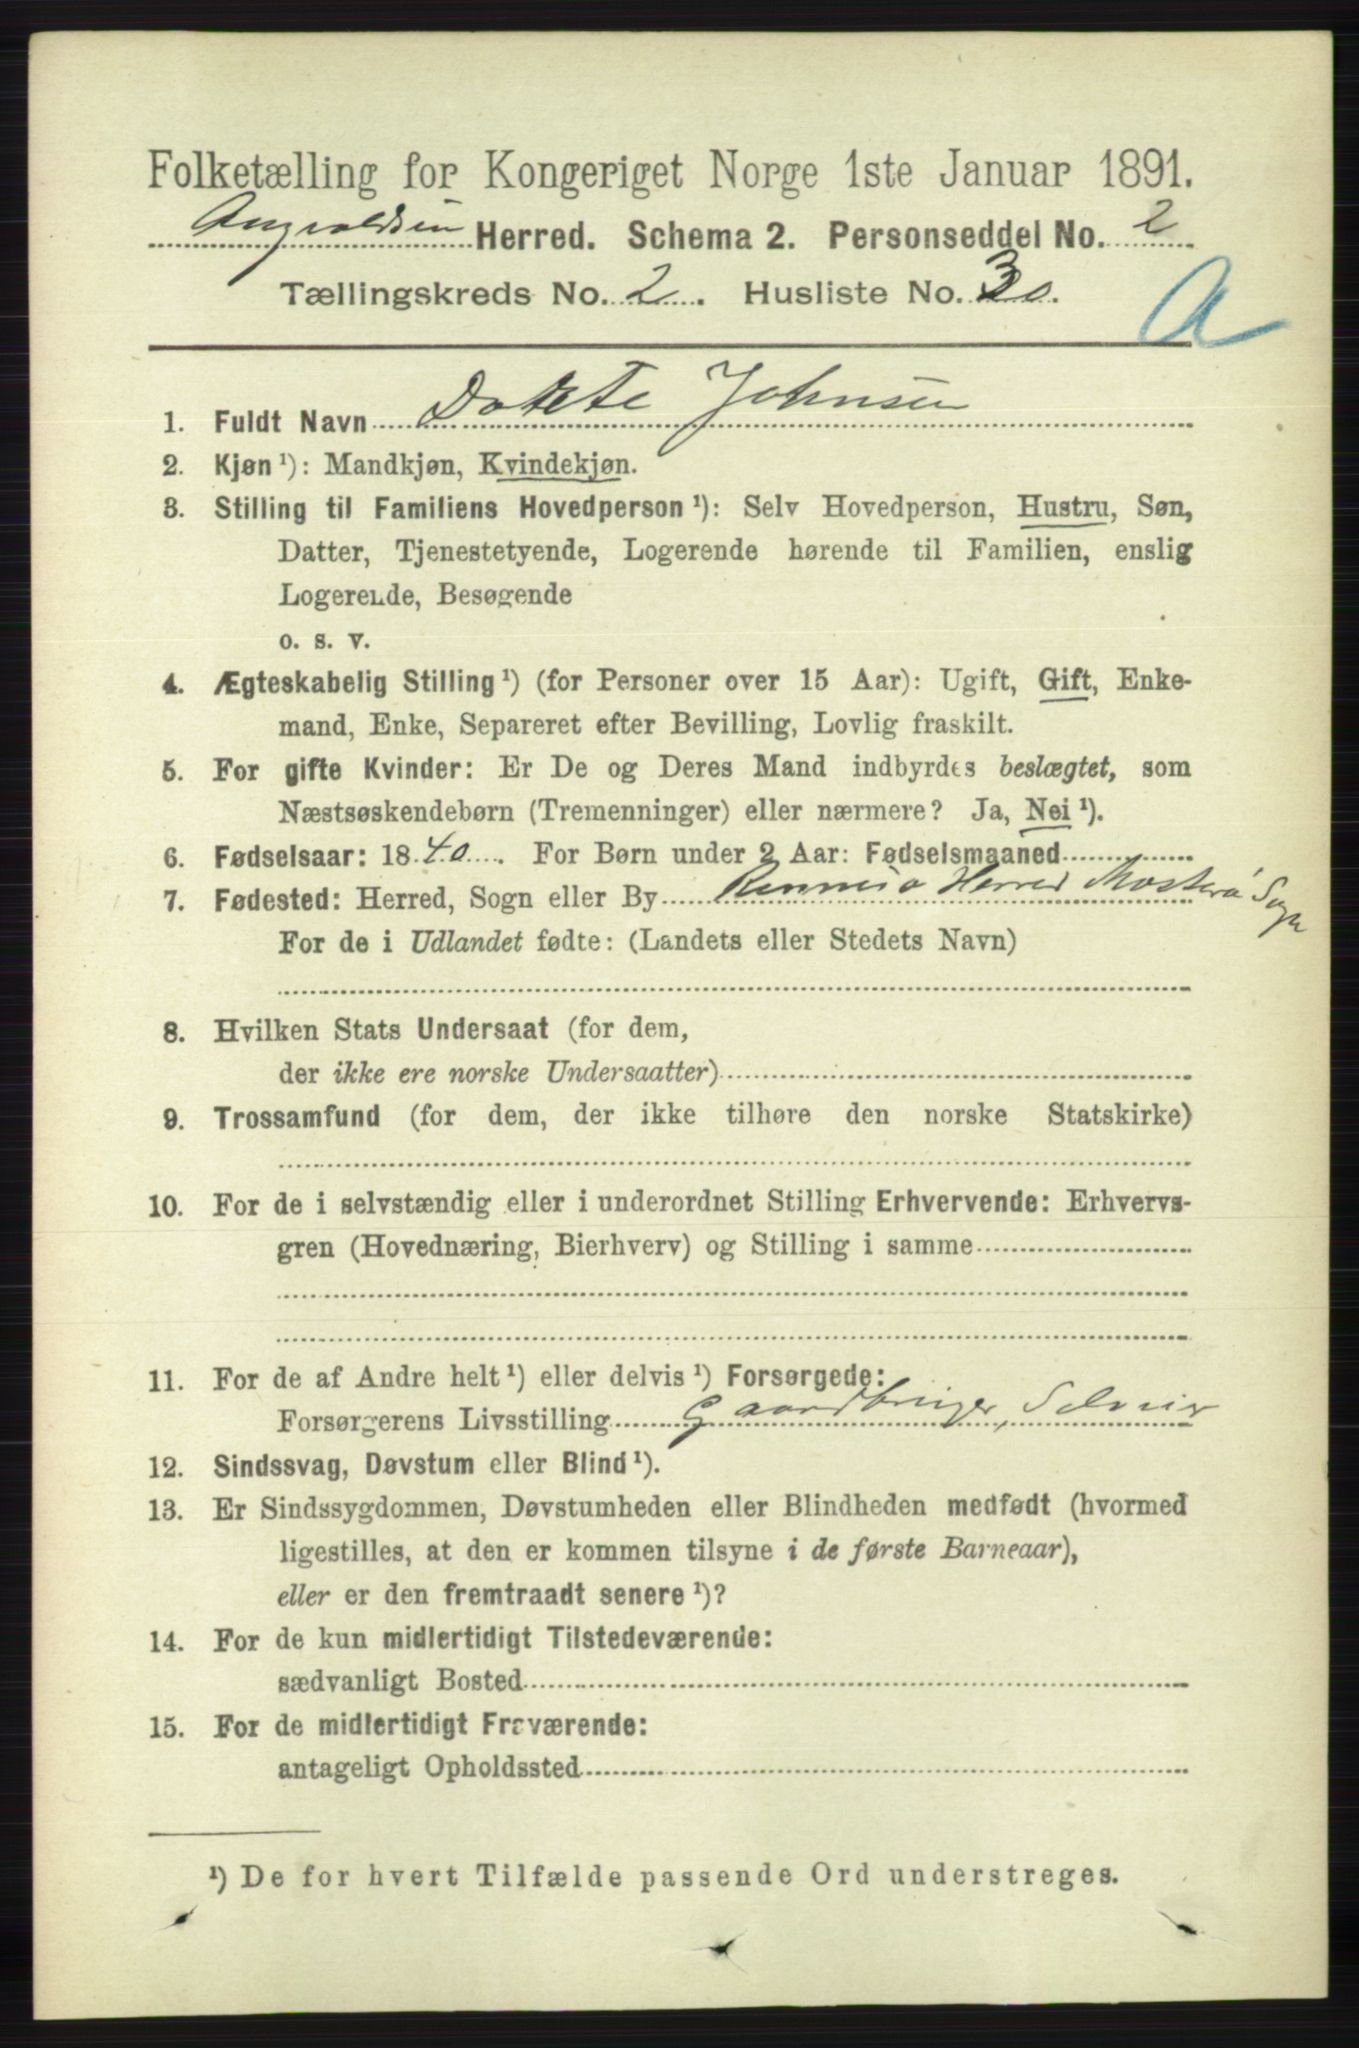 Folketælling for Kongeriget Norge 1ste Januar 1891.
Herred. Schema 2. Personseddel No. 2
Tællingskreds No. 2. Husliste No. 30.
A
1. Fuldt Navn Johnsen
2. Kjøn ¹): Mandkjøn, Kvindekjøn.
3. Stilling til Familiens Hovedperson ¹): Selv Hovedperson, Hustru, Søn,
Datter, Tjenestetyende, Logerende hørende til Familien, enslig
Logerende, Besøgende
o. s. v.
4. Ægteskabelig Stilling ¹) (for Personer over 15 Aar): Ugift, Gift, Enke-
mand, Enke, Separeret efter Bevilling, Lovlig fraskilt.
5. For gifte Kvinder: Er De og Deres Mand indbyrdes beslægtet, som
Næstsøskendebørn (Tremenninger) eller nærmere? Ja, Nei ¹).
6. Fødselsaar: 1840. For Børn under 2 Aar: Fødselsmaaned
7. Fødested: Herred, Sogn eller By Rennesø Herred Mosterø Sogn
For de i Udlandet fødte: (Landets eller Stedets Navn)
8. Hvilken Stats Undersaat (for dem,
der ikke ere norske Undersaatter)
9. Trossamfund (for dem, der ikke tilhøre den norske Statskirke)
10. For de i selvstændig eller i underordnet Stilling Erhvervende: Erhvervs-
gren (Hovednæring, Bierhverv) og Stilling i samme
11. For de af Andre helt ¹) eller delvis ¹) Forsørgede:
Forsørgerens Livsstilling Gaardbruger, Selveier
12. Sindssvag, Døvstum eller Blind ¹).
13. Er Sindssygdommen, Døvstumheden eller Blindheden medfødt (hvormed
ligestilles, at den er kommen tilsyne i de første Barneaar),
eller er den fremtraadt senere ¹)?
14. For de kun midlertidigt Tilstedeværende:
sædvanligt Bosted
15. For de midlertidigt Fraværende:
antageligt Opholdssted
¹) De for hvert Tilfælde passende Ord understreges.